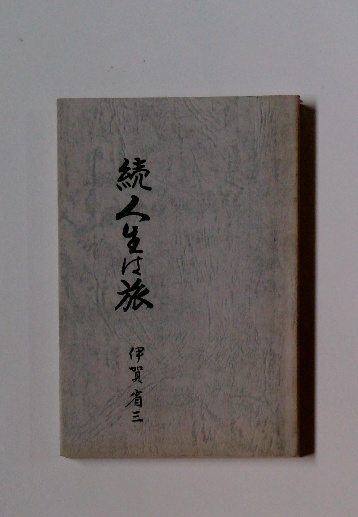 続人生は旅
伊賀省三